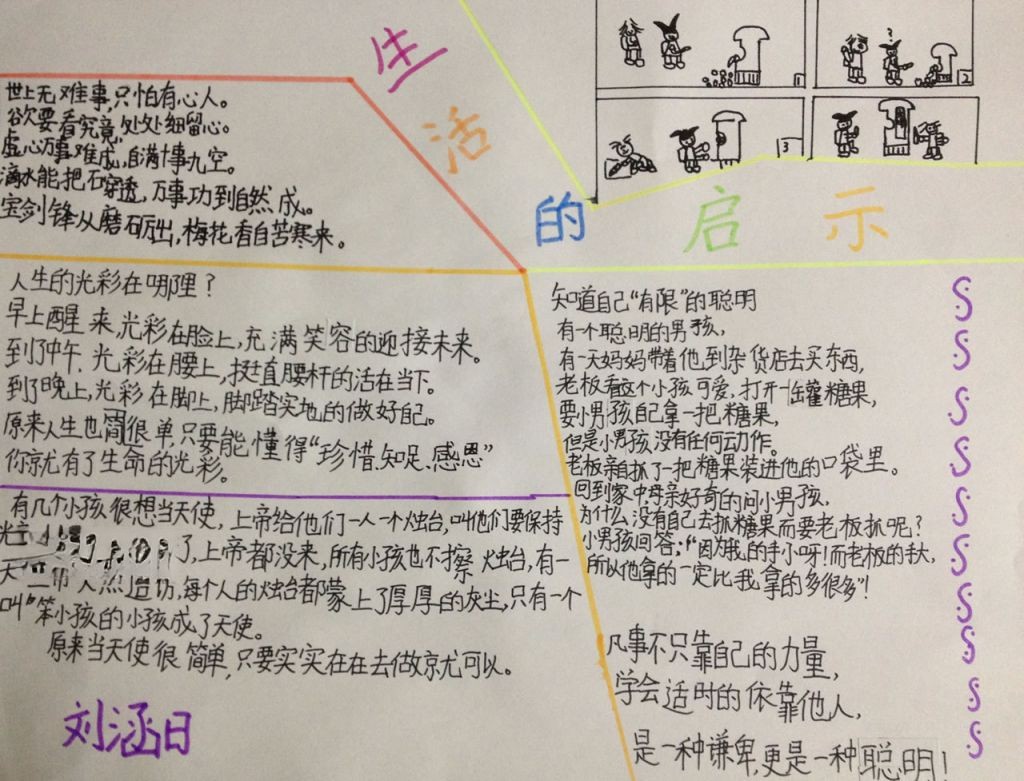 生活的启示
1
2
3
世上无难事,只怕有心人。
欲要看究竟,处处细留心。
虚心万事难成,自满十事九空。
滴水能把石穿透,万事功到自然成。
宝剑锋从磨砺出,梅花香自苦寒来。
人生的光彩在哪理?
早上醒来,光彩在脸上,充满笑容的迎接未来。
到了中午,光彩在腰上,挺直腰杆的活在当下。
到了晚上,光彩在脚上,脚踏实地的做好自己。
原来人生也简很单,只要能懂得“珍惜、知足、感恩”
你就有了生命的光彩。
有几个小孩很想当天使,上帝给他们一人一个烛台,叫他们要保持
光
了,上帝都没来,所有小孩也不擦烛台,有一
天上帝突然造访,每个人的烛台都蒙上了厚厚的灰尘,只有一个
叫“笨小孩的小孩成了天使。
原来当天使很简单,只要实实在在去做就可以。
刘涵日
知道自己“有限”的聪明
有一个聪明的男孩,
有一天妈妈带着他到杂货店去买东西,
老板看这个小孩可爱,打开一缶罐糖果,
要小男孩自己拿一把糖果,
但是小男孩没有任何动作。
老板亲自抓了一把糖果装进他的口袋里。
回到家中母亲好奇的问小男孩,
为什么没有自己去抓糖果而要老板抓呢?
小男孩回答:“因为我的手小呀!而老板的手大,
所以他拿的一定比我拿的多很多”!
凡事不只靠自己的力量,
学会适时的依靠他人,
是一种谦卑,更是一种聪明!